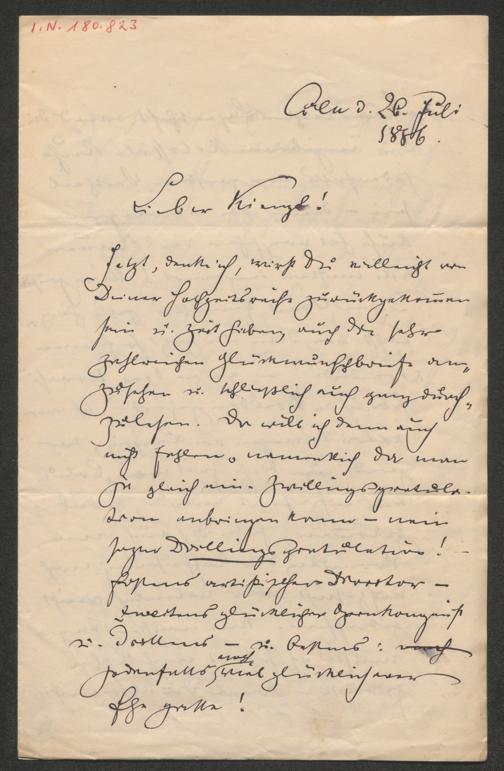 I.N. 180.823
Cöln d. 26. Juli
1886.
Lieber Kienzl!
Jetzt, denk ich, wirst Du vielleicht von
Deiner Hochzeitsreise zurückgekommen
sein u. Zeit haben, auch die sehr
zahlreichen Glückwunschbriefe an-
zusehen u. schließlich auch ganz durch-
zulesen. Da will ich denn auch
nicht fehlen, namentlich da man
ja gleich eine Zwillingsgratula-
tion anbringen kann – nein
sogar Drillingsgratulation! –
Erstens artistischer Director –
zweitens glücklicher Opernkomponist
u. Drittens – u. bestens:
jedenfalls noch viel glücklicherer
Ehegatte!